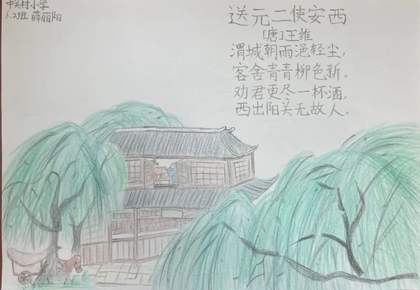 中关村小学
1.2班 薛丽阳
送元二使安西
[唐]王维
渭城朝雨浥轻尘,
客舍青青柳色新。
劝君更尽一杯酒,
西出阳关无故人。